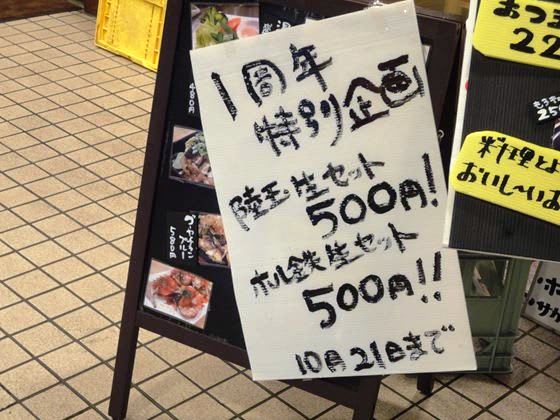 1周年
特別企画
陸王生セット
500円!
ホル鉄生セット
500円!!
10月21日まで
480円
ゴーヤチャンプルー
580円
おつ
22
料理とよ
おいし〜いお